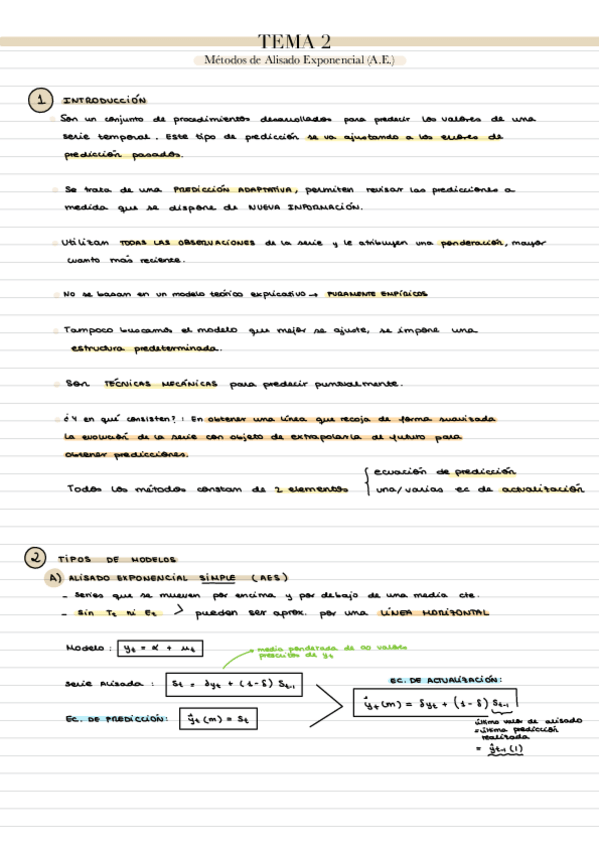 TEMA 2
Métodos de Alisado Exponencial (A.E.)
1 INTRODUCCIÓN
Son un conjunto de procedimientos desarrollados para predecir los valores de una
serie temporal. Este tipo de predicción se va ajustando a los errores de
predicción pasados.
Se trata de una PREDICCIÓN ADAPTATIVA, permiten revisar las predicciones a
medida que se dispone de NUEVA INFORMACIÓN.
Utilizan TODAS LAS OBSERVACIONES de la serie y le atribuyen una ponderación, mayor
cuanto más reciente.
No se basan en un modelo teórico explicativo → PURAMENTE EMPÍRICOS
Tampoco buscamos el modelo que mejor se ajuste, se impone una
estructura predeterminada.
Son TÉCNICAS MECÁNICAS para predecir puntualmente.
¿Y en qué consisten?: En obtener una línea que recoja de forma suavizada
la evolución de la serie con objeto de extrapolarla al futuro para
obtener predicciones.
Todos los métodos constan de 2 elementos { ecuación de predicción
una/varias ec de actualización
2 TIPOS DE MODELOS
A) ALISADO EXPONENCIAL SIMPLE (AES)
- Series que se mueven por encima y por debajo de una media cte.
- Sin Tt ni Et > pueden ser aprox. por una LÍNEA HORIZONTAL
Modelo: yt = α + ut
media ponderada de ∞ valores
pretéritos de yt
Serie Alisada: St = δyt + (1-δ) St-1
EC. DE PREDICCIÓN: ŷt(m) = St
EC. DE ACTUALIZACIÓN:
ŷt(m) = δyt + (1-δ) St-1
último valor de alisado
= última predicción
realizada
= ŷt-1(1)